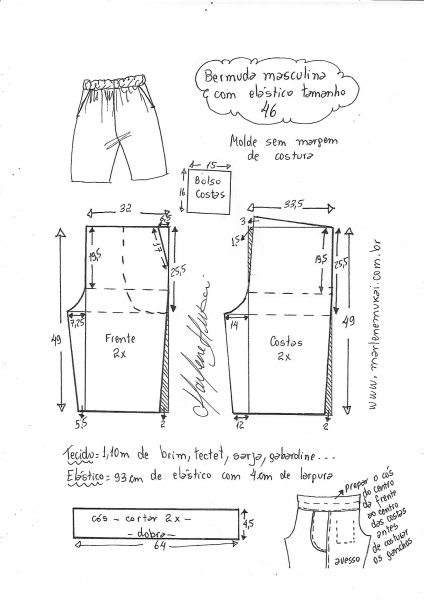 Bermuda masculina
com elástico tamanho
46
Molde sem margem
de costura
15
16
Bolso
Costas
32
19,5
17
25,5
7,25
49
Frente
2x
5,5
2
Marlene Mukai
33,5
3
1,5
19,5
25,5
14
49
Costas
2x
2
2
www.marlenemukai.com.br
Tecido = 1,10m de brim, tectel, sarja, gabardine...
Elástico = 93 cm de elástico com 4 cm de largura
cós - cortar 2x -
- dobra -
4,5
64
Pregar o cós
do centro
da frente
ao centro
das costas
antes
de costurar
os ganchos
avesso